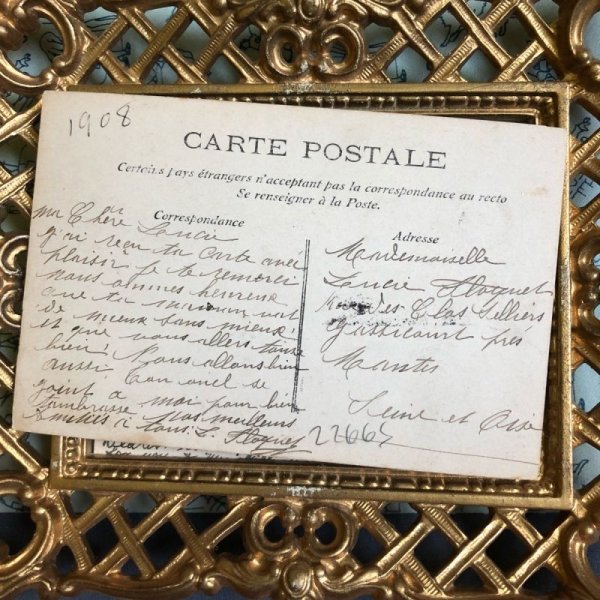 1908
CARTE POSTALE
Certains pays étrangers n'acceptent pas la correspondance au recto
Se renseigner à la Poste.
Correspondance
ma Chère Lucie
j'ai reçu ta carte avec
plaisir je te remerci
nous sommes heureux
que ta maman vat
de mieux sans mieux
et que vous allers tousse
bien Nous allons bien
aussi Ton oncl se
joint a moi pour bien
t'ambrasse Nos meilleurs
amities à tous L. Floquet
22665
Adresse
Mademoiselle
Lucie Floquet
des Clos Celliers
Gassicourt prés
Mantes
Seine et Oise